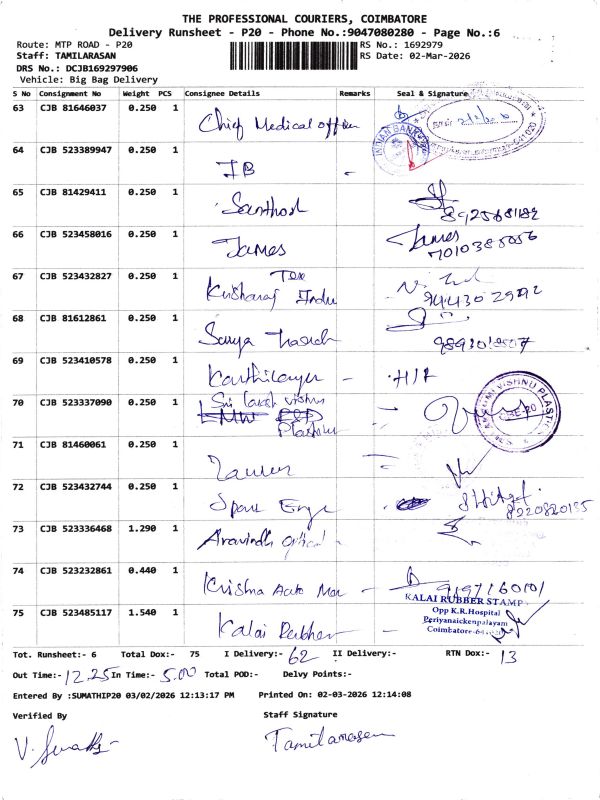 THE PROFESSIONAL COURIERS, COIMBATORE
Delivery Runsheet - P20 - Phone No.:9047080280 - Page No.:6
Route: MTP ROAD - P20 RS No.: 1692979
Staff: TAMILARASAN RS Date: 02-Mar-2026
DRS No.: DCJB169297906
Vehicle: Big Bag Delivery
S No Consignment No Weight PCS Consignee Details Remarks Seal & Signature
63 CJB 81646037 0.250 1 Chief Medical officer
INDIAN BANK
64 CJB 523389947 0.250 1 IB -
65 CJB 81429411 0.250 1 Santhosh
8925681182
66 CJB 523458016 0.250 1 James James
7010385056
67 CJB 523432827 0.250 1 Tex
Krishnaraj Indu 944302 2992
68 CJB 81612861 0.250 1 Surya
69 CJB 523410578 0.250 1 -
70 CJB 523337090 0.250 1 Sri Laksh vishnu
Plastics
VISHNU PLASTIC
CBE-20
71 CJB 81460061 0.250 1
72 CJB 523432744 0.250 1 Spark Engg -
8220820155
73 CJB 523336468 1.290 1 Aravindh optical -
74 CJB 523232861 0.440 1 Krishna Auto Mar -
9197160101
75 CJB 523485117 1.540 1 Kalai Rubber -
KALAI RUBBER STAMP
Opp K.R.Hospital
Periyanaickenpalayam
Coimbatore-641020
Tot. Runsheet:- 6 Total Dox:- 75 I Delivery:- 62 II Delivery:- RTN Dox:- 13
Out Time:- 12.25 In Time:- 5.00 Total POD:- Delvy Points:-
Entered By :SUMATHIP20 03/02/2026 12:13:17 PM Printed On: 02-03-2026 12:14:08
Verified By Staff Signature
Tamilarasan